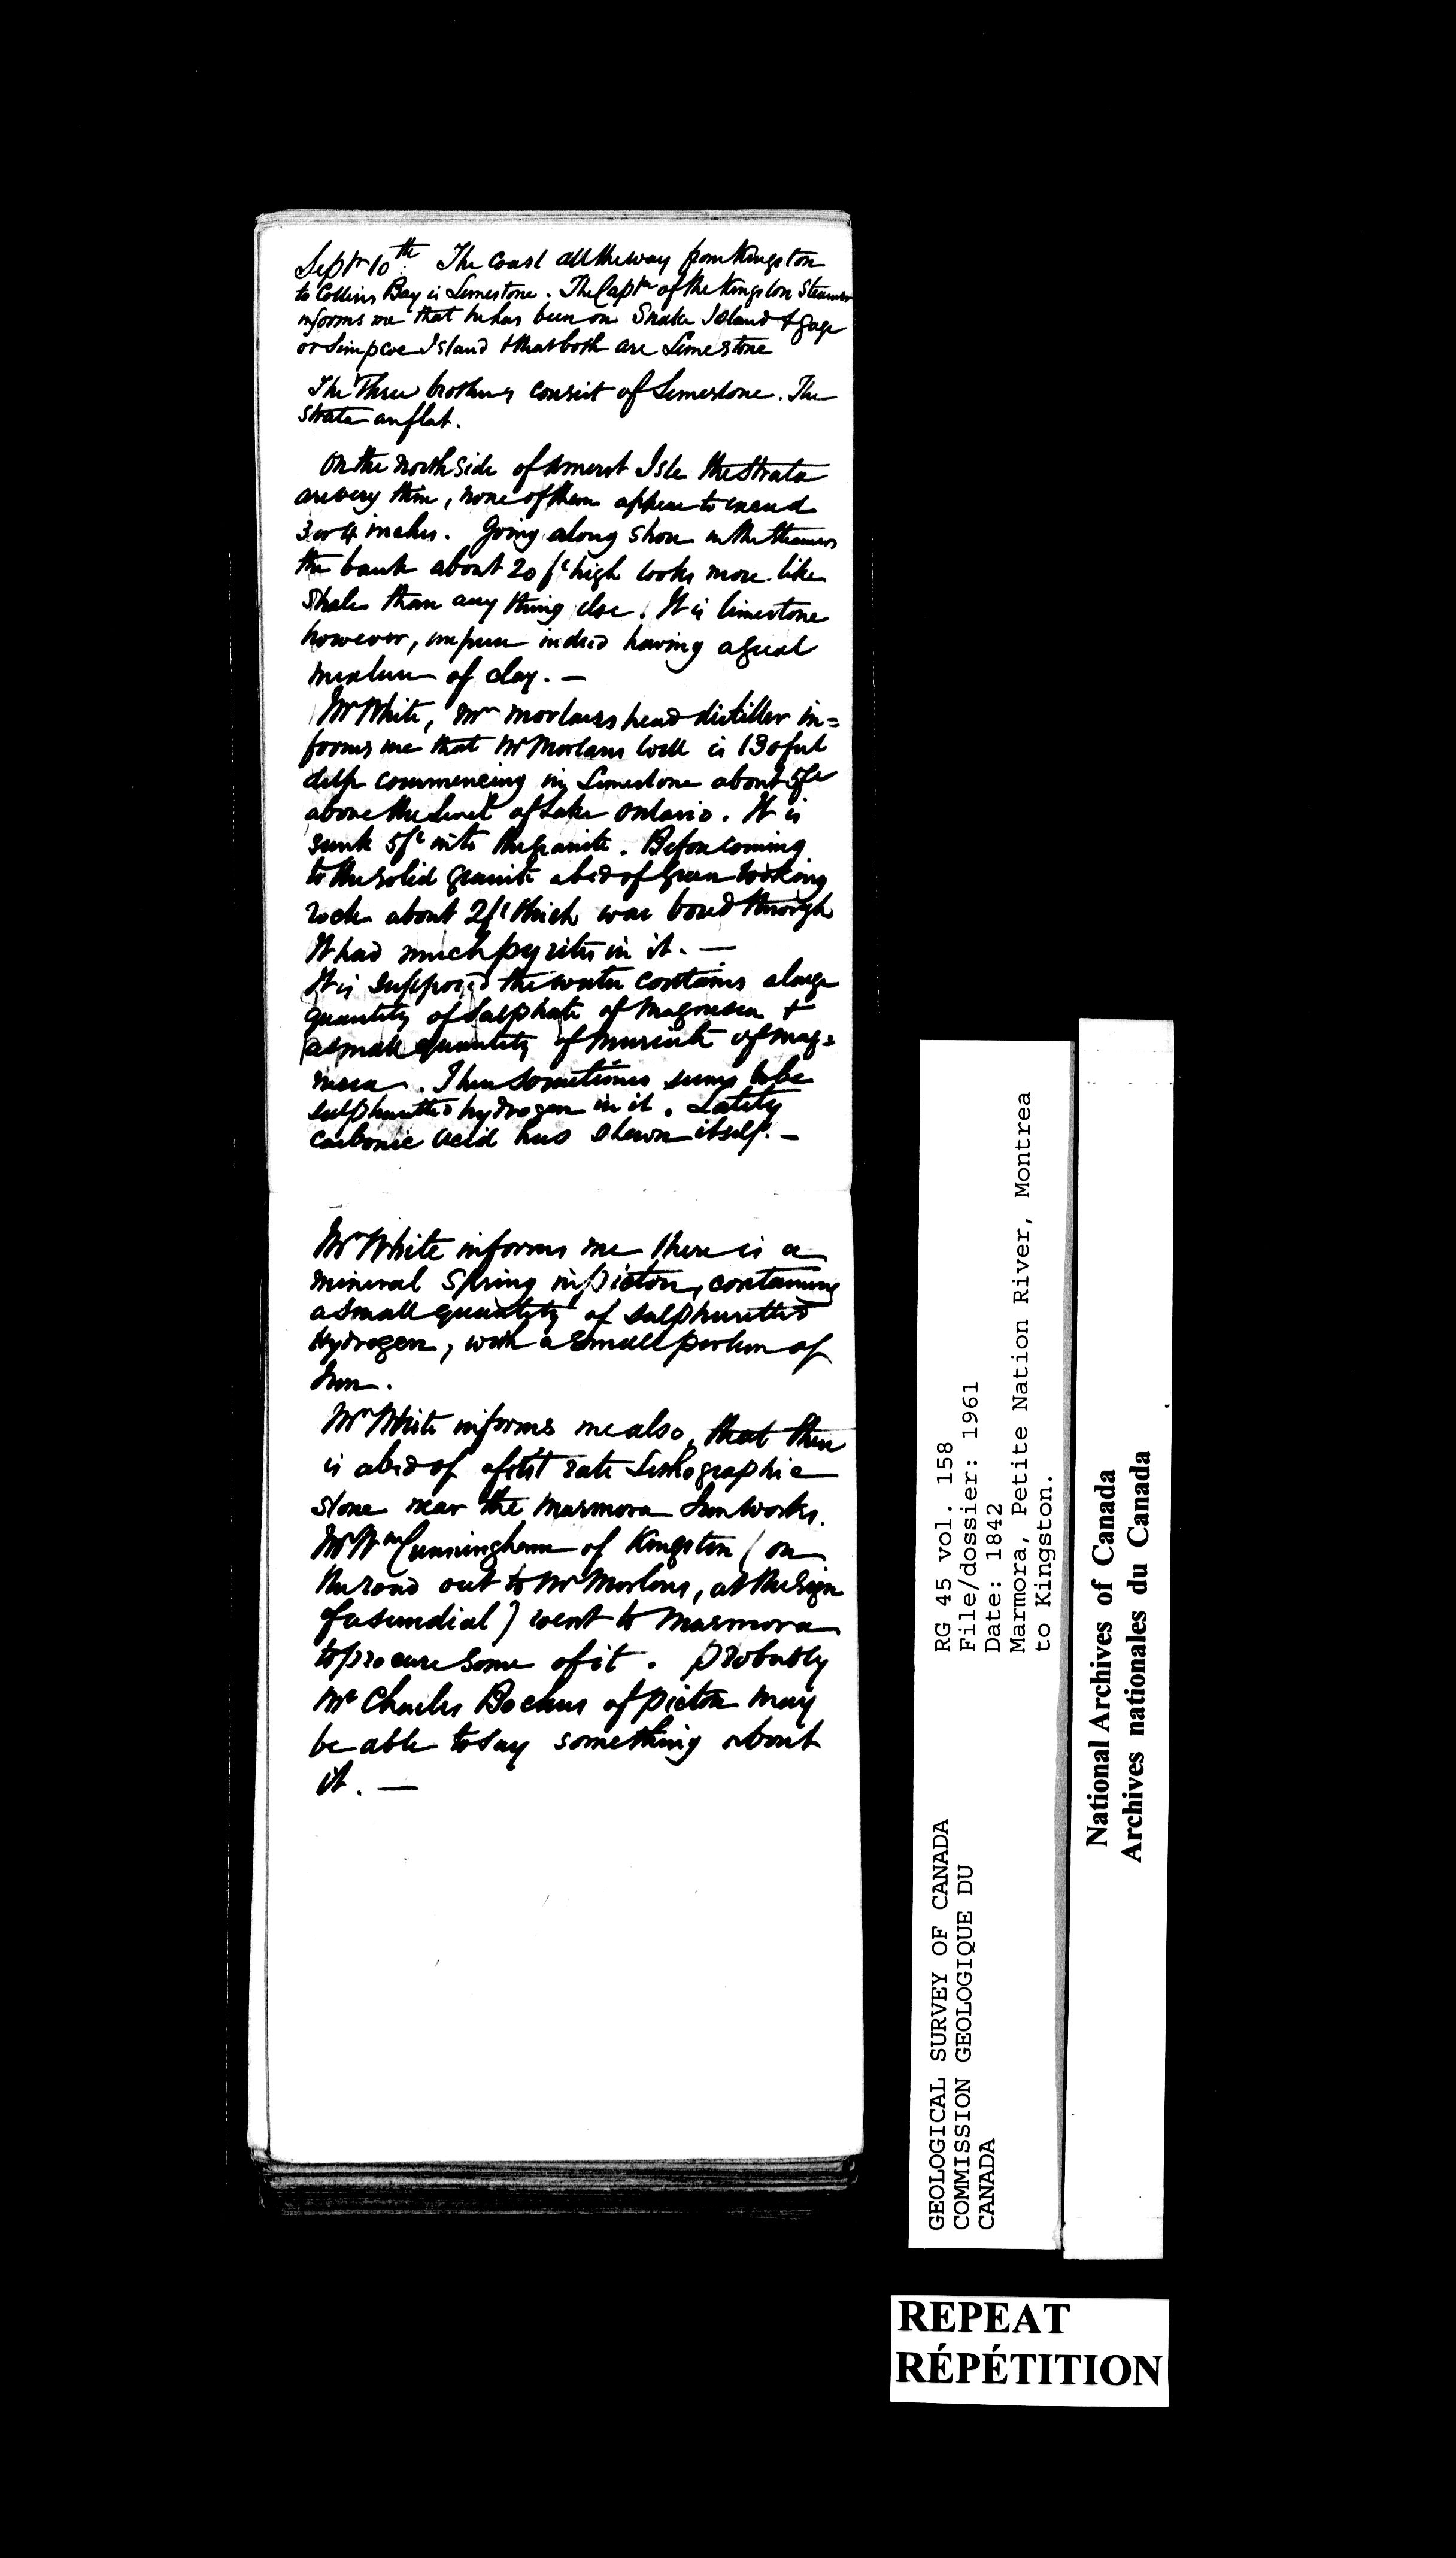 Septr 10th. The coast all the way from Kingston
to Collins Bay is Limestone. The Captn of the Kingston Steamer
informs me that he has been on Snake Island & Gage
or Simpcoe Island & that both are Limestone
The Three brothers consist of Limestone. The
strata are flat.
On the north side of Amerst Isle the strata
are very thin, none of them appear to exceed
3 or 4 inches. Going along shore in the steamer
the bank about 20 ft high looks more like
shale than any thing else. It is limestone
however, impure indeed having a great
mixture of clay. —
Mr White, Mr Morlans head distiller in=
forms me that Mr Morlans well is 130 feet
deep commencing in Limestone about 5ft
above the level of Lake Ontario. It is
sunk 5ft into the granite. Before coming
to the solid granite a bed of green looking
rock about 2ft thick was bored through
It had much pyrites in it. —
It is supposed the water contains a large
quantity of sulphate of Magnesia &
a small quantity of muriate of mag=
nesia. There sometimes seems to be
sulphuretted hydrogen in it. Lately
carbonic acid has shewn itself. —
Mr White informs me there is a
mineral spring in Picton, containing
a small quantity of sulphuretted
Hydrogen, with a small portion of
Iron.
Mr White informs me also, that there
is a bed of first rate Lithographic
stone near the Marmora Iron works.
Mr Wm Cunningham of Kingston (on
the road out to Mr Morlans, at the sign
of a sundial) went to Marmora
to procure some of it. Probably
Mr Charles Bockus of Picton may
be able to say something about
it. —
GEOLOGICAL SURVEY OF CANADA
COMMISSION GEOLOGIQUE DU
CANADA
RG 45 vol. 158
File/dossier: 1961
Date: 1842
Marmora, Petite Nation River, Montrea
to Kingston.
National Archives of Canada
Archives nationales du Canada
REPEAT
RÉPÉTITION